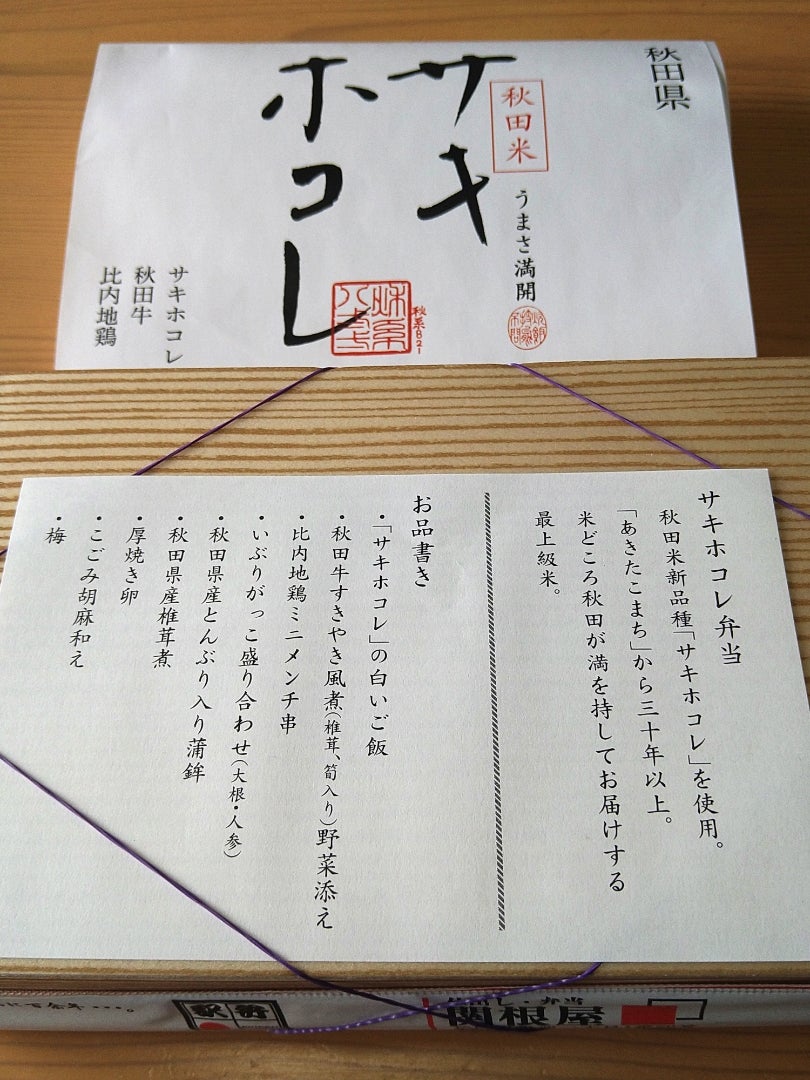 秋田県
秋田米
うまさ満開
サキ
ホコレ
秋系821
サキホコレ
秋田牛
比内地鶏
サキホコレ弁当
秋田米新品種「サキホコレ」を使用。
「あきたこまち」から三十年以上。
米どころ秋田が満を持してお届けする
最上級米。
お品書き
・「サキホコレ」の白いご飯
・秋田牛すきやき風煮(椎茸、筍入り)野菜添え
・比内地鶏ミニメンチ串
・いぶりがっこ盛り合わせ(大根・人参)
・秋田県産とんぶり入り蒲鉾
・秋田県産椎茸煮
・厚焼き卵
・こごみ胡麻和え
・梅
駅弁
弁当
関根屋